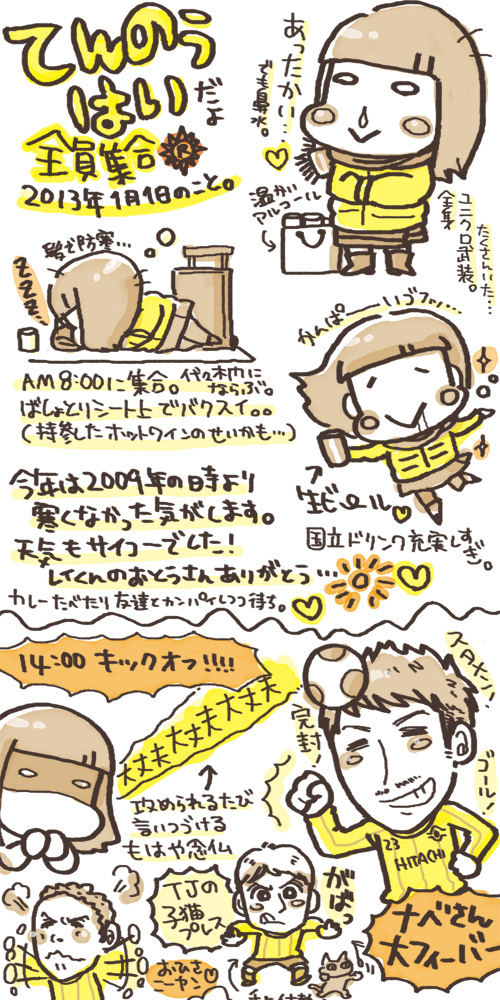 てんのう
はい だよ
全員集合 R
2013年1月1日のこと。
あったかい…
でも鼻水。
温かい
アルコール
全身
ユニクロ武装。
たくさんいた…
髪で防寒…
ZZZZ
AM 8:00に集合。代々木門に
ならぶ。
ばしょとりシート上でバクスイ。。
(持参したホットワインのせいかも…)
かんぱーーいゴフッ…
生ビール
国立ドリンク充実しすぎ。
今年は2009年の時より
寒くなかった気がします。
天気もサイコーでした!
レイくんのおとうさんありがとう…
カレーたべたり友達とカンパイしつつ待ち。
14:00 キックオフ!!!!
大丈夫大丈夫大丈夫
攻められるたび
言いつづける
もはや念仏
スタメン!
完封!
ゴール!
23
HITACHI
TJの
子猫
プレス
がばっ
おひさ
ニーヤン
ナベさん
大フィーバー